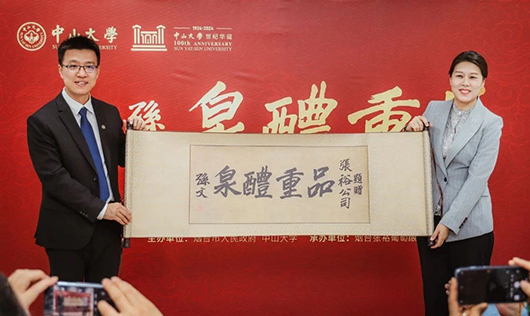 中山大學
SUN YAT-SEN UNIVERSITY
1924-2024
中山大學世紀華誕
100th ANNIVERSARY
SUN YAT-SEN UNIVERSITY
重醴泉
孫
題贈
張裕公司
品重醴泉
孫文
主办单位：烟台市人民政府 中山大学 承办单位：烟台张裕葡萄酿